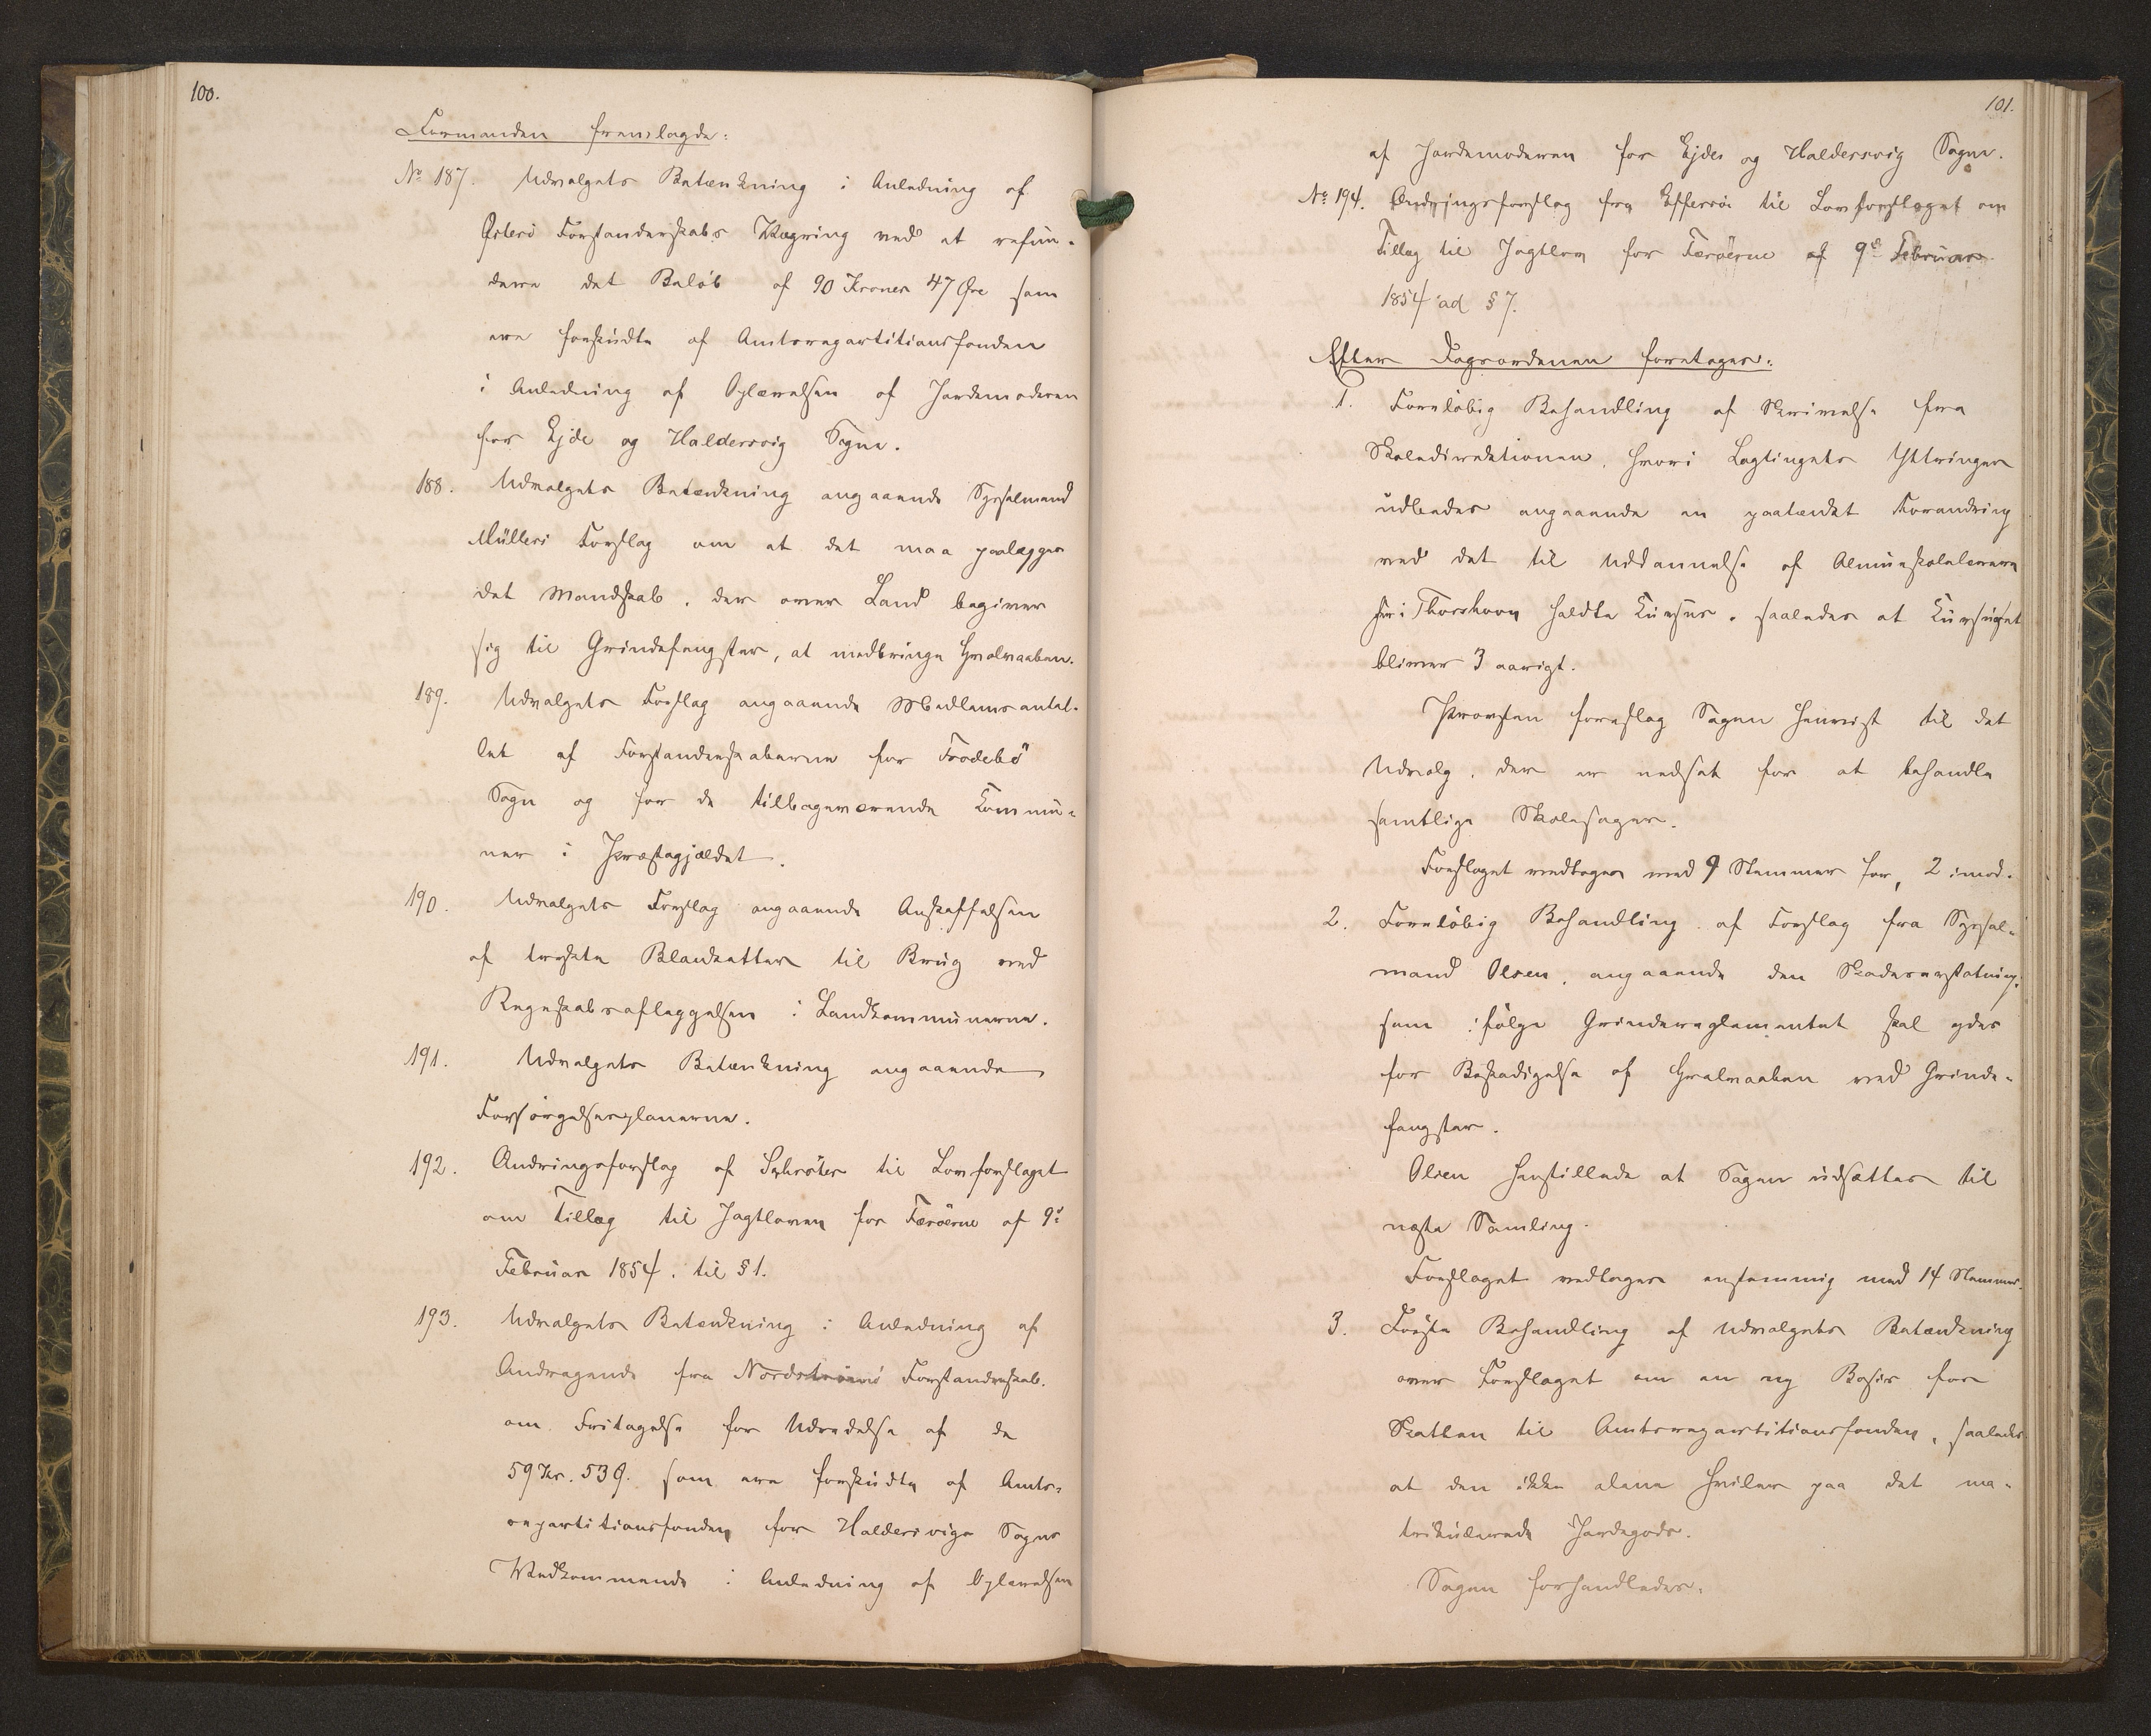 100.
Formanden fremlagde:
No 187. Udvalgets Betænkning i Anledning af
Østerö Forstanderskabs Vægring ved at refun-
dere det Beløb af 90 Kroner 47 Øre som
ere forskudte af Amtsrepartitionsfonden
i Anledning af Oplærelsen af Jordemoderen
for Ejde og Haldersvig Sogne.
188. Udvalgets Betænkning angaaende Sysselmand
Müllers Forslag om at det maa paalægges
det Mandskab, der over Land begiver
sig til Grindefangster, at medbringe Hvalvaaben.
189. Udvalgets Forslag angaaende Medlemsantal-
let af Forstanderskaberne for Frodebö
Sogn og for de tilbageværende Kommu-
ner i Præstegjældet.
190. Udvalgets Forslag angaaende Anskaffelsen
af trykte Blanketter til Brug ved
Regnskabsaflæggelsen i Landkommunerne.
191. Udvalgets Betænkning angaaende
Forsörgelsesplanerne.
192. Ændringsforslag af Schröter til Lovforslaget
om Tillæg til Jagtloven for Færöerne af 9d
Februar 1854. til § 1.
193. Udvalgets Betænkning i Anledning af
Andragende fra Nordströmö Forstanderskab.
om Fritagelse for Udredelse af de
59 Kr. 53 Ø. som ere forskudte af Amts-
repartitionsfonden for Haldersvigs Sogns
Vedkommende i Anledning af Oplærelsen
101.
af Jordemoderen for Ejdes og Haldersvig Sogne.
No 194. Ændringsforslag fra Effersöe til Lovforslaget om
Tillæg til Jagtlov for Færöerne af 9d Februar
1854 ad § 7.
Efter Dagsordenen foretages:
1. Forelöbig Behandling af Skrivelse fra
Skoledirektionen, hvori Lagtingets Yttringer
udbedes angaaende en paatænkt Forandring
ved det til Uddannelse af Almueskolelærere
her i Thorshavn holdte Kursus, saaledes at Kursuset
bliver 3 aarigt.
Provsten foreslog Sagen henvist til det
Udvalg, der er nedsat for at behandle
samtlige Skolesager.
Forslaget vedtages med 9 Stemmer for, 2 imod.
2. Forelöbig Behandling af Forslag fra Syssel-
mand Olsen, angaaende den Skadeserstatning,
som ifölge Grindereglementet skal ydes
for Beskadigelse af Hvalvaaben ved Grinde-
fangster.
Olsen henstillede at Sagen udsættes til
næste Samling.
Forslaget vedtages enstemmig med 14 Stemmer.
3. Förste Behandling af Udvalgets Betænkning
over Forslaget om en ny Basis for
Skatten til Amtsrepartitionsfonden, saaledes
at den ikke alene hviler paa det ma-
trikulerede Jordegods.
Sagen forhandledes.